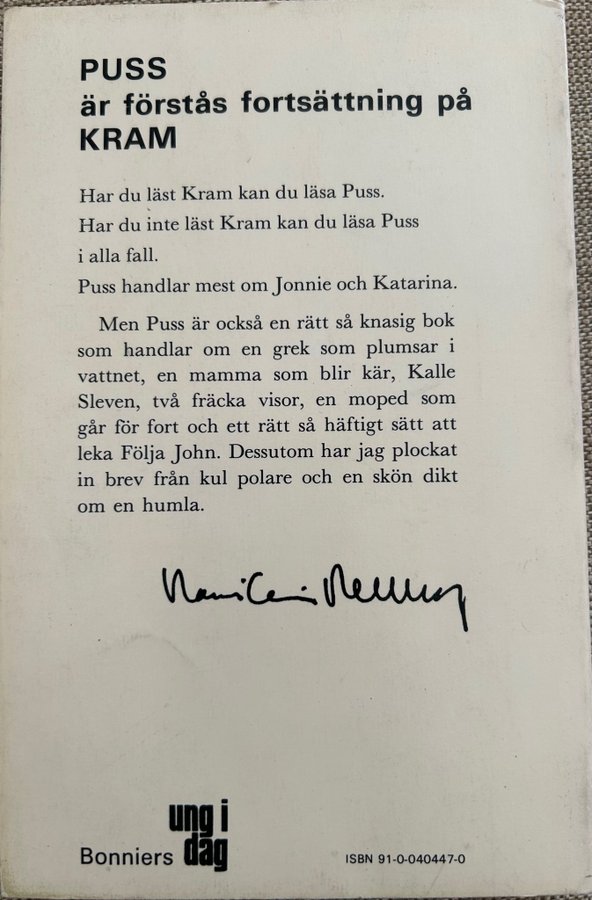 PUSS
är förstås fortsättning på
KRAM
Har du läst Kram kan du läsa Puss.
Har du inte läst Kram kan du läsa Puss
i alla fall.
Puss handlar mest om Jonnie och Katarina.
Men Puss är också en rätt så knasig bok
som handlar om en grek som plumsar i
vattnet, en mamma som blir kär, Kalle
Sleven, två fräcka visor, en moped som
går för fort och ett rätt så häftigt sätt att
leka Följa John. Dessutom har jag plockat
in brev från kul polare och en skön dikt
om en humla.
ung i
Bonniers dag
ISBN 91-0-040447-0